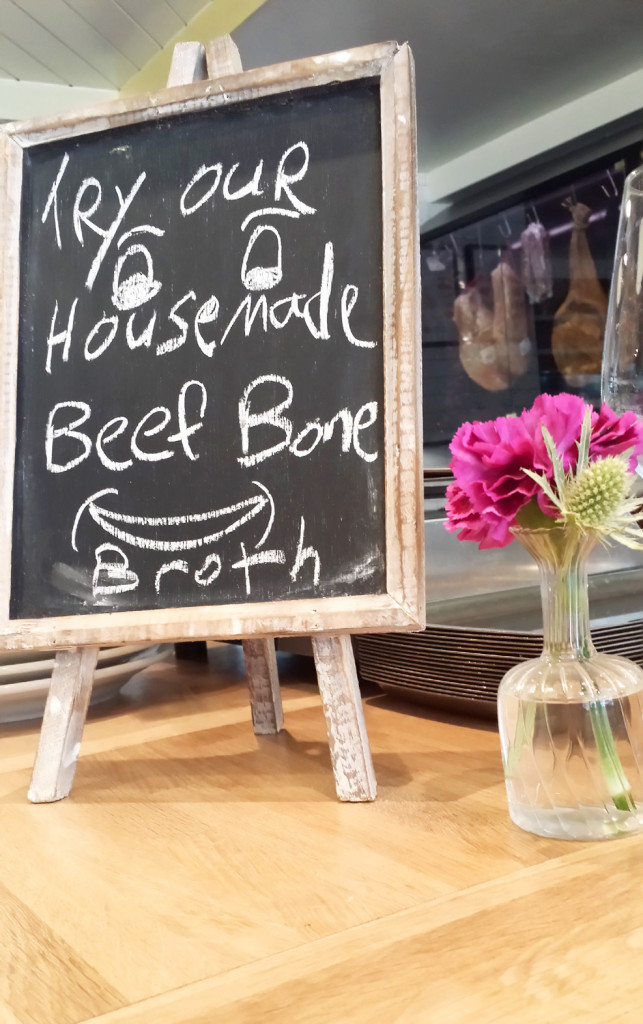 Try our
Housemade
Beef Bone
Broth